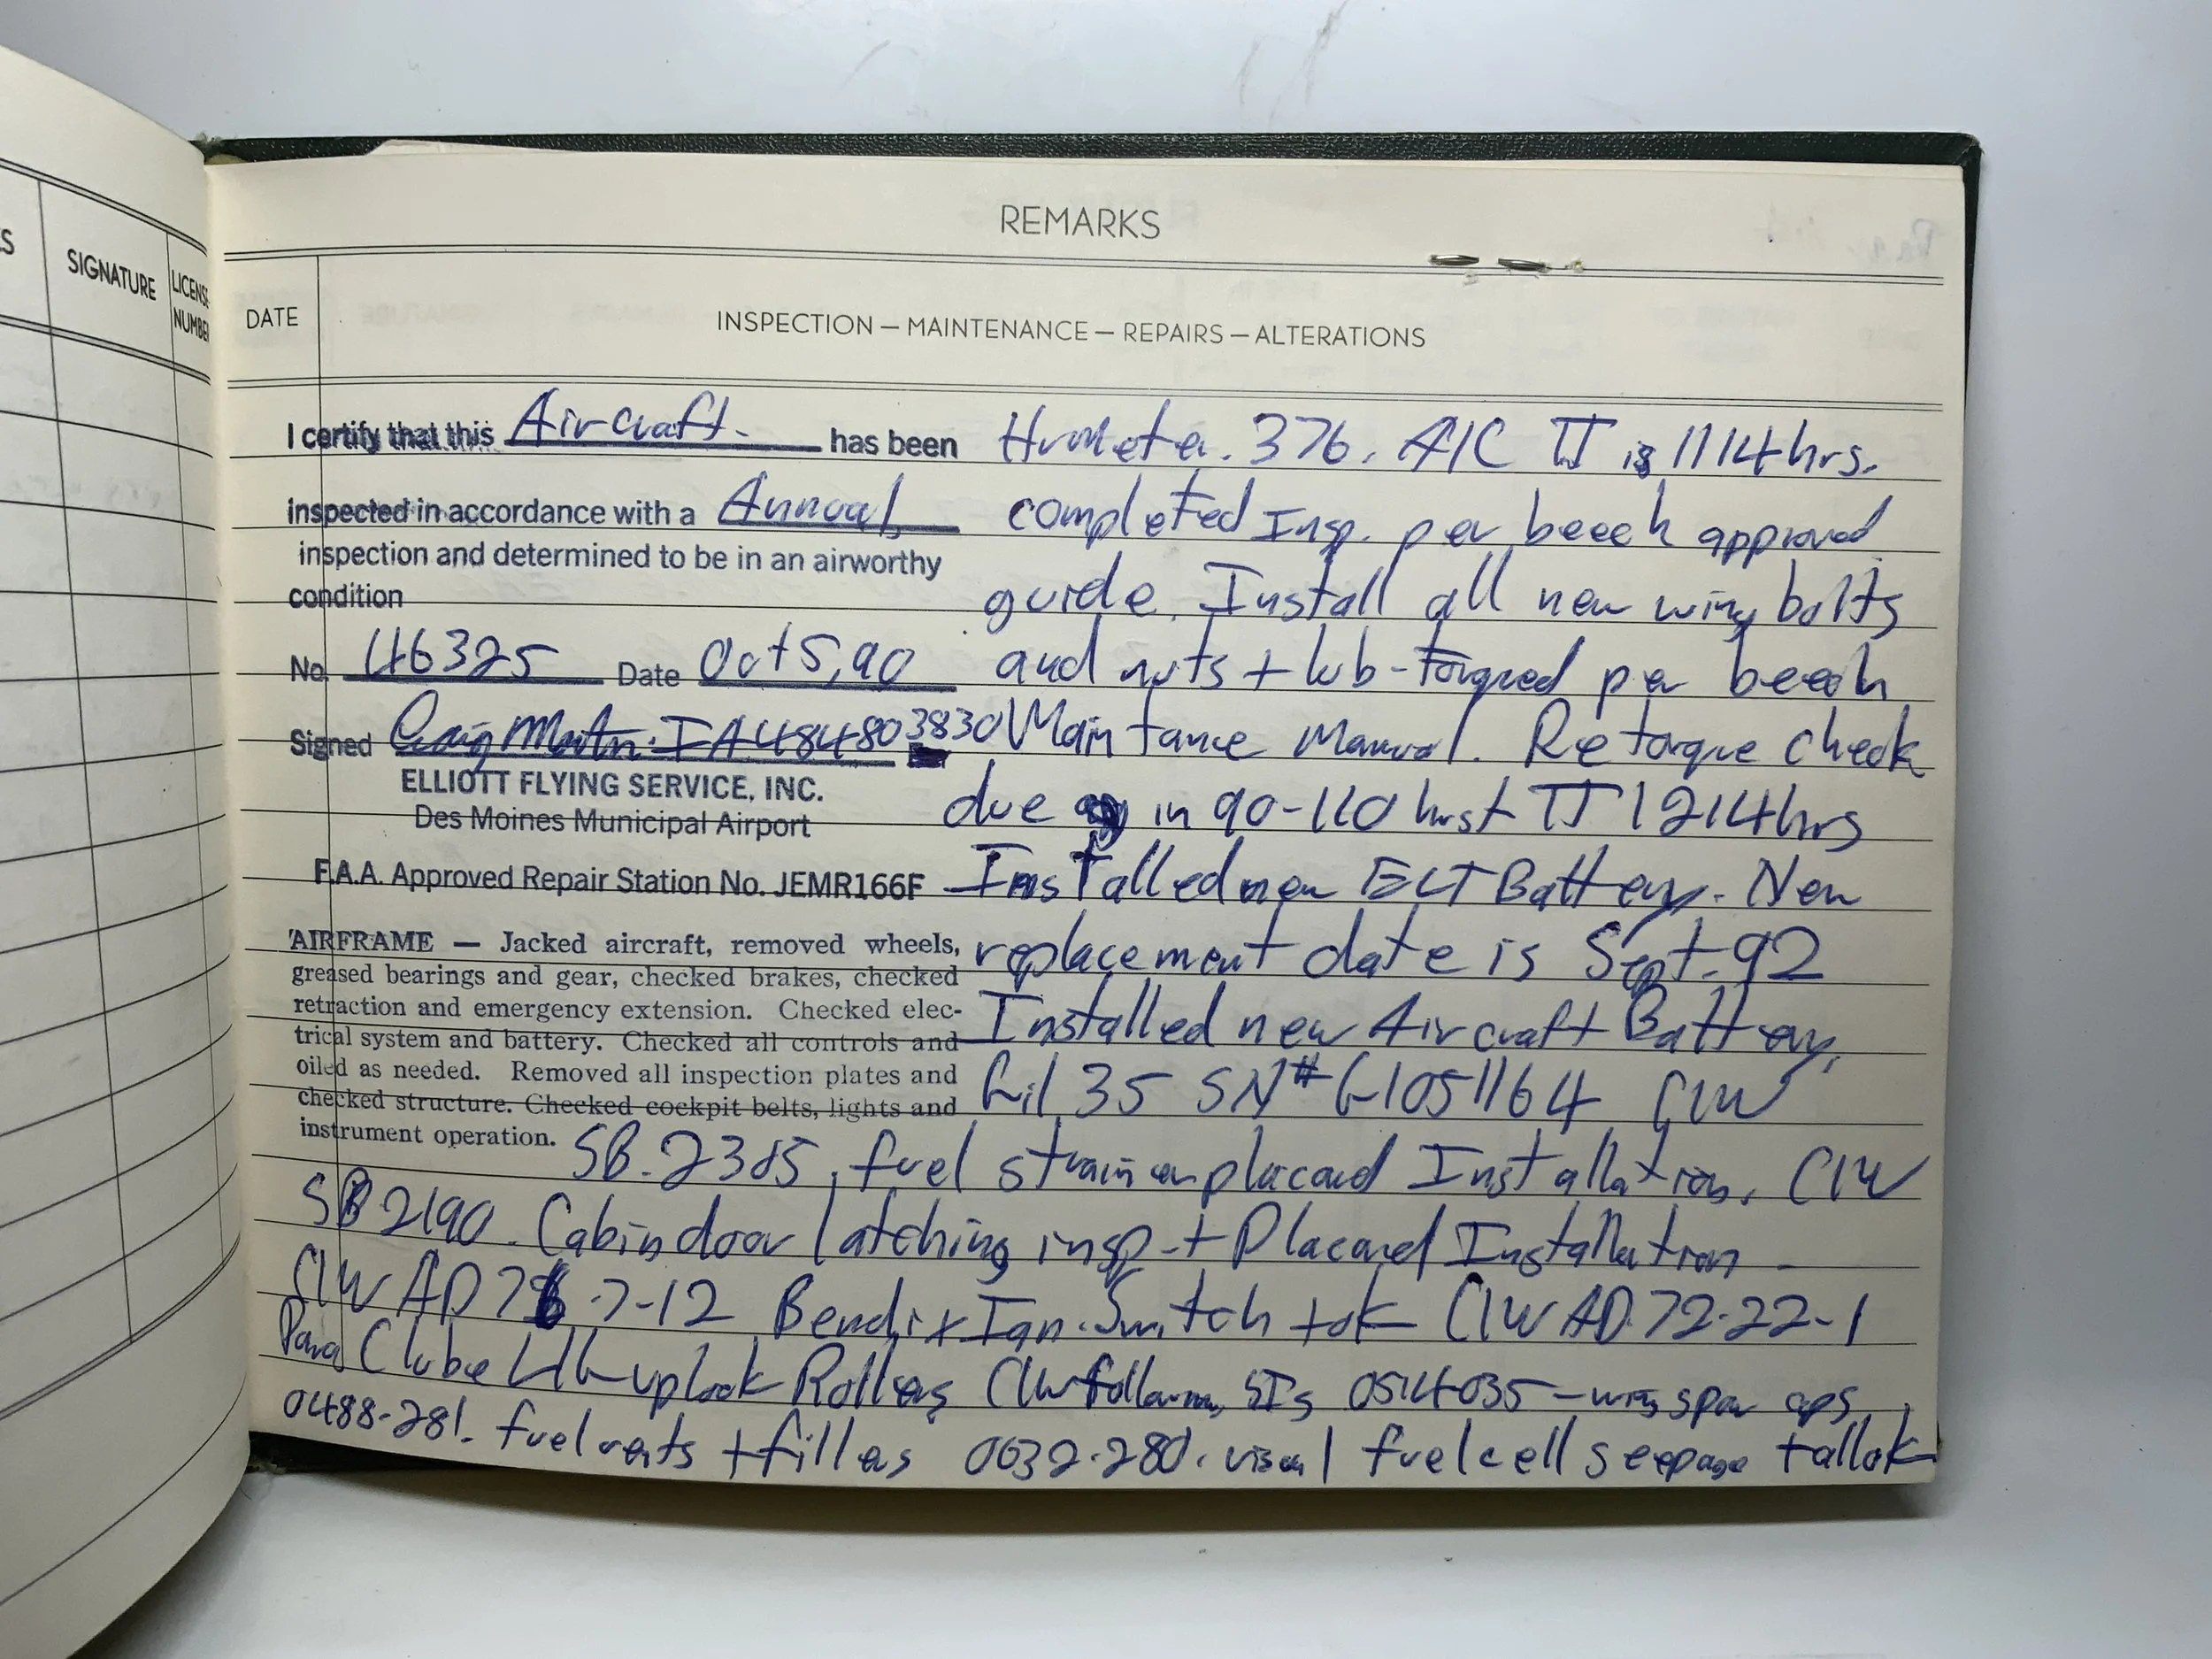 S
SIGNATURE
LICENSE
NUMBER
REMARKS
DATE
INSPECTION — MAINTENANCE — REPAIRS — ALTERATIONS
I certify that this Aircraft. has been
inspected in accordance with a Annual
inspection and determined to be in an airworthy
condition
No. 46325 Date Oct 5, 90
Signed Craig Martin IA 484803830
ELLIOTT FLYING SERVICE, INC.
Des Moines Municipal Airport
F.A.A. Approved Repair Station No. JEMR166F
AIRFRAME — Jacked aircraft, removed wheels,
greased bearings and gear, checked brakes, checked
retraction and emergency extension. Checked elec-
trical system and battery. Checked all controls and
oiled as needed. Removed all inspection plates and
checked structure. Checked cockpit belts, lights and
instrument operation.
Hrmeter. 376. A/C TT is 1114 hrs.
completed Insp. per beech approved
guide. Install all new wing bolts
and nuts + lub-Torqued per beech
Maintance Manual. Retorque check
due in 90-110 hrs + TT 1214 hrs
Installed new ELT Battery. New
replacement date is Sept-92
Installed new Aircraft Battery,
Gil 35 SN# G1051164 C/W
SB.2385, fuel strainer placard Installation. C/W
SB 2190. Cabin door latching insp + Placard Installation
C/W AD 76-7-12 Bendix Ign. Switch + ok C/W AD 72-22-1
Para C lube uplock Rollers C/W following SIs 0514035 - wing spar caps
0488-281. fuel vents + fillers 0632-280. visual fuel cell seepage + all ok